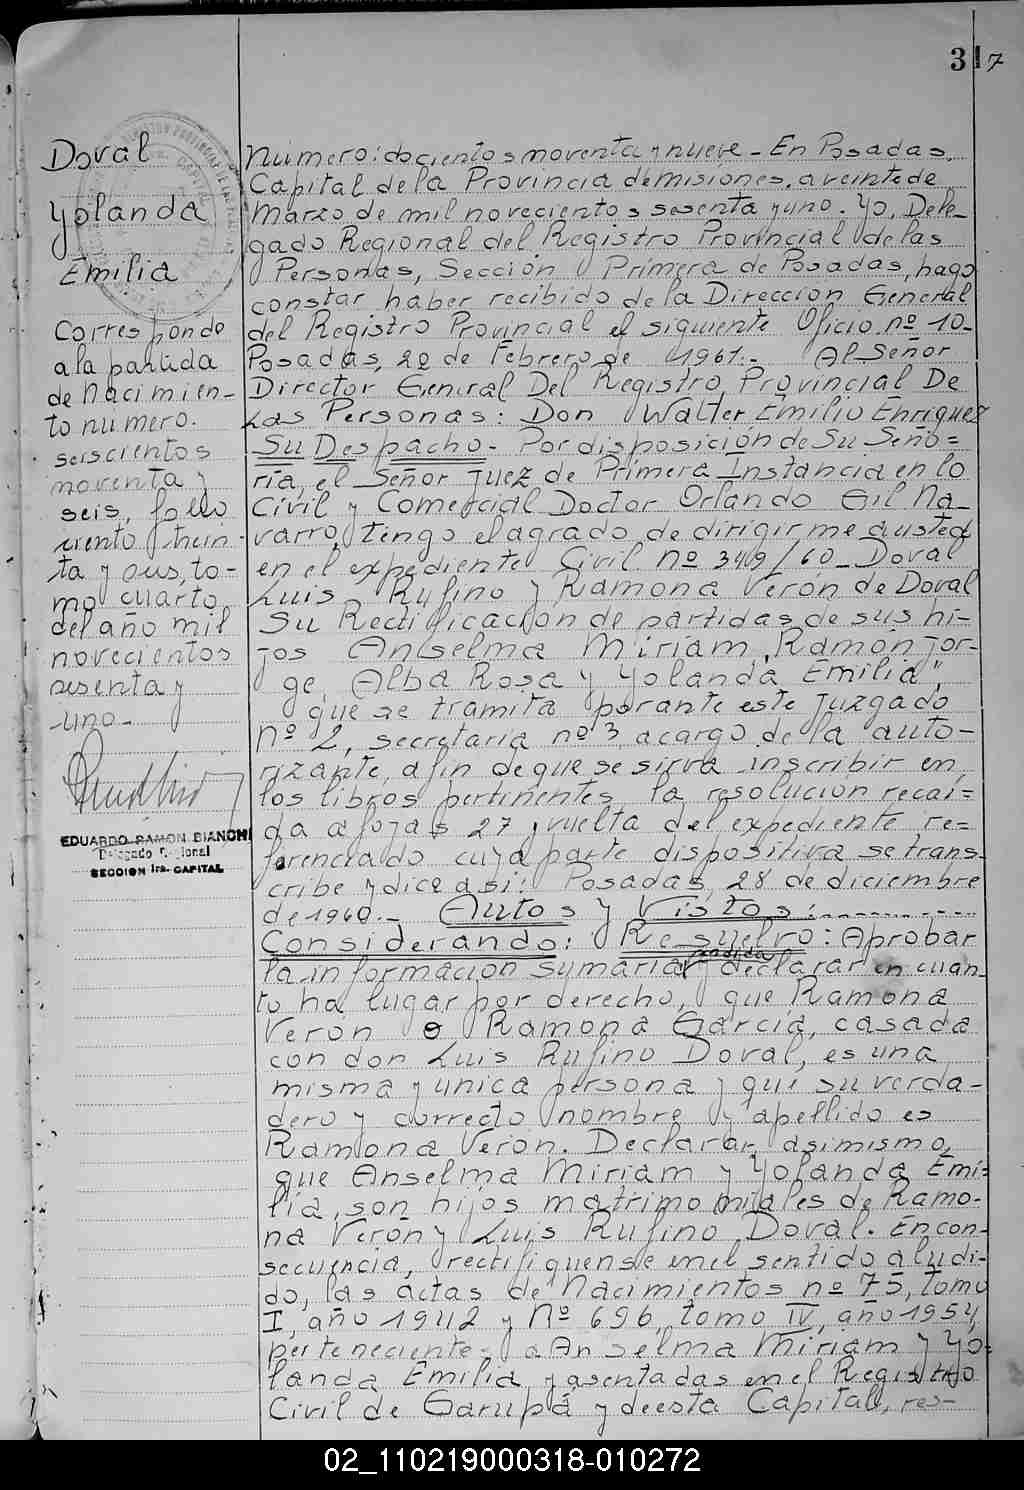 317
Doval
Yolanda
Emilia
Corresponde
a la partida
de Nacimien-
to numero.
seiscientos
noventa y
seis, folio
ciento trein-
ta y seis, to-
mo cuarto
del año mil
novecientos
sesenta y
uno.
EDUARDO RAMON BIANCHI
Delegado Regional
SECCION 1ra. CAPITAL
Número: docientos noventa y nueve - En Posadas,
Capital de la Provincia de misiones, a veinte de
Marzo de mil novecientos sesenta y uno. Yo, Dele-
gado Regional del Registro Provincial de las
Personas, Sección Primera de Posadas, hago
constar haber recibido de la Direccion General
del Registro Provincial el siguiente Oficio nº 10-
Posadas, 22 de Febrero de 1961.- Al Señor
Director General Del Registro Provincial De
Las Personas: Don Walter Emilio Enriquez
Su Despacho - Por disposición de Su Seño=
ria, el Señor Juez de Primera Instancia en lo
Civil y Comercial Doctor Orlando Gil Na-
varro, tengo el agrado de dirigirme a usted
en el expediente Civil nº 349/60 - Doval
Luis Rufino y Ramona Verón de Doval
Su Rectificacion de partidas de sus hi-
jos Anselma Miriam, Ramón Jor-
ge, Alba Rosa y Yolanda Emilia",
que se tramita por ante este Juzgado
Nº 2, secretaria nº 3, a cargo de la auto-
rizante, a fin de que se sirva inscribir en
los libros pertinentes la resolucion recai=
da a fojas 27 y vuelta del expediente re=
ferenciado cuya parte dispositiva se trans-
cribe y dice asi: Posadas, 28 de diciembre
de 1960.- Autos y Vistos:
Considerando: Resuelvo: Aprobar
la informacion sumaria rendida y declarar en cuan-
to ha lugar por derecho, que Ramona
Veron o Ramona García, casada
con don Luis Rufino Doval, es una
misma y unica persona y que su verda-
dero y correcto nombre y apellido es
Ramona Veron. Declarar asimismo,
que Anselma Miriam y Yolanda Emi=
lia, son hijos matrimoniales de Ramo-
na Verón y Luis Rufino Doval. En con-
secuencia, rectifiquense en el sentido aludi-
do, las actas de Nacimientos nº 75, tomo
I, año 1942 y Nº 696, tomo IV, año 1954,
perteneciente a Anselma Miriam y Yo-
landa Emilia, y asentadas en el Registro
Civil de Garupá y de esta Capital, res-
02_110219000318-010272